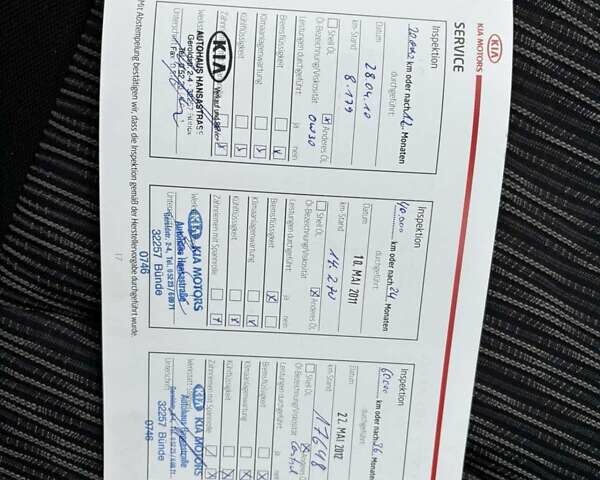 KIA
KIA MOTORS
SERVICE
Inspektion
20.000 km oder nach 12. Monaten
durchgeführt:
Datum
28.04.10
km-Stand
8.179
Shell Öl
Anderes Öl
Öl-Bezeichnung/Viskosität
0W30
Leistungen durchgeführt:
ja nein
Bremsflüssigkeit
Klimaanlagenwartung
Kühlflüssigkeit
KIA
AUTOHAUS HANSASTRASSE
Inspektion
40.000 km oder nach 24. Monaten
durchgeführt:
Datum
10. MAI 2011
km-Stand
14.270
Shell Öl
Anderes Öl
Öl-Bezeichnung/Viskosität
Leistungen durchgeführt:
ja nein
Bremsflüssigkeit
Klimaanlagenwartung
Kühlflüssigkeit
Zahnriemen mit Spannrolle
KIA KIA MOTORS
Autohaus Hansastraße
32257 Bünde
0746
Inspektion
60000 km oder nach 36. Monaten
durchgeführt:
Datum
22. MAI 2012
km-Stand
17648
Shell Öl
Anderes Öl
Öl-Bezeichnung/Viskosität
Leistungen durchgeführt:
ja nein
Bremsflüssigkeit
Klimaanlagenwartung
Kühlflüssigkeit
Zahnriemen mit Spannrolle
KIA MOTORS
Autohaus Hansastraße
32257 Bünde
0746
Mit Abstempelung bestätigen wir, dass die Inspektion gemäß der Herstellervorgabe durchgeführt wurde.
17